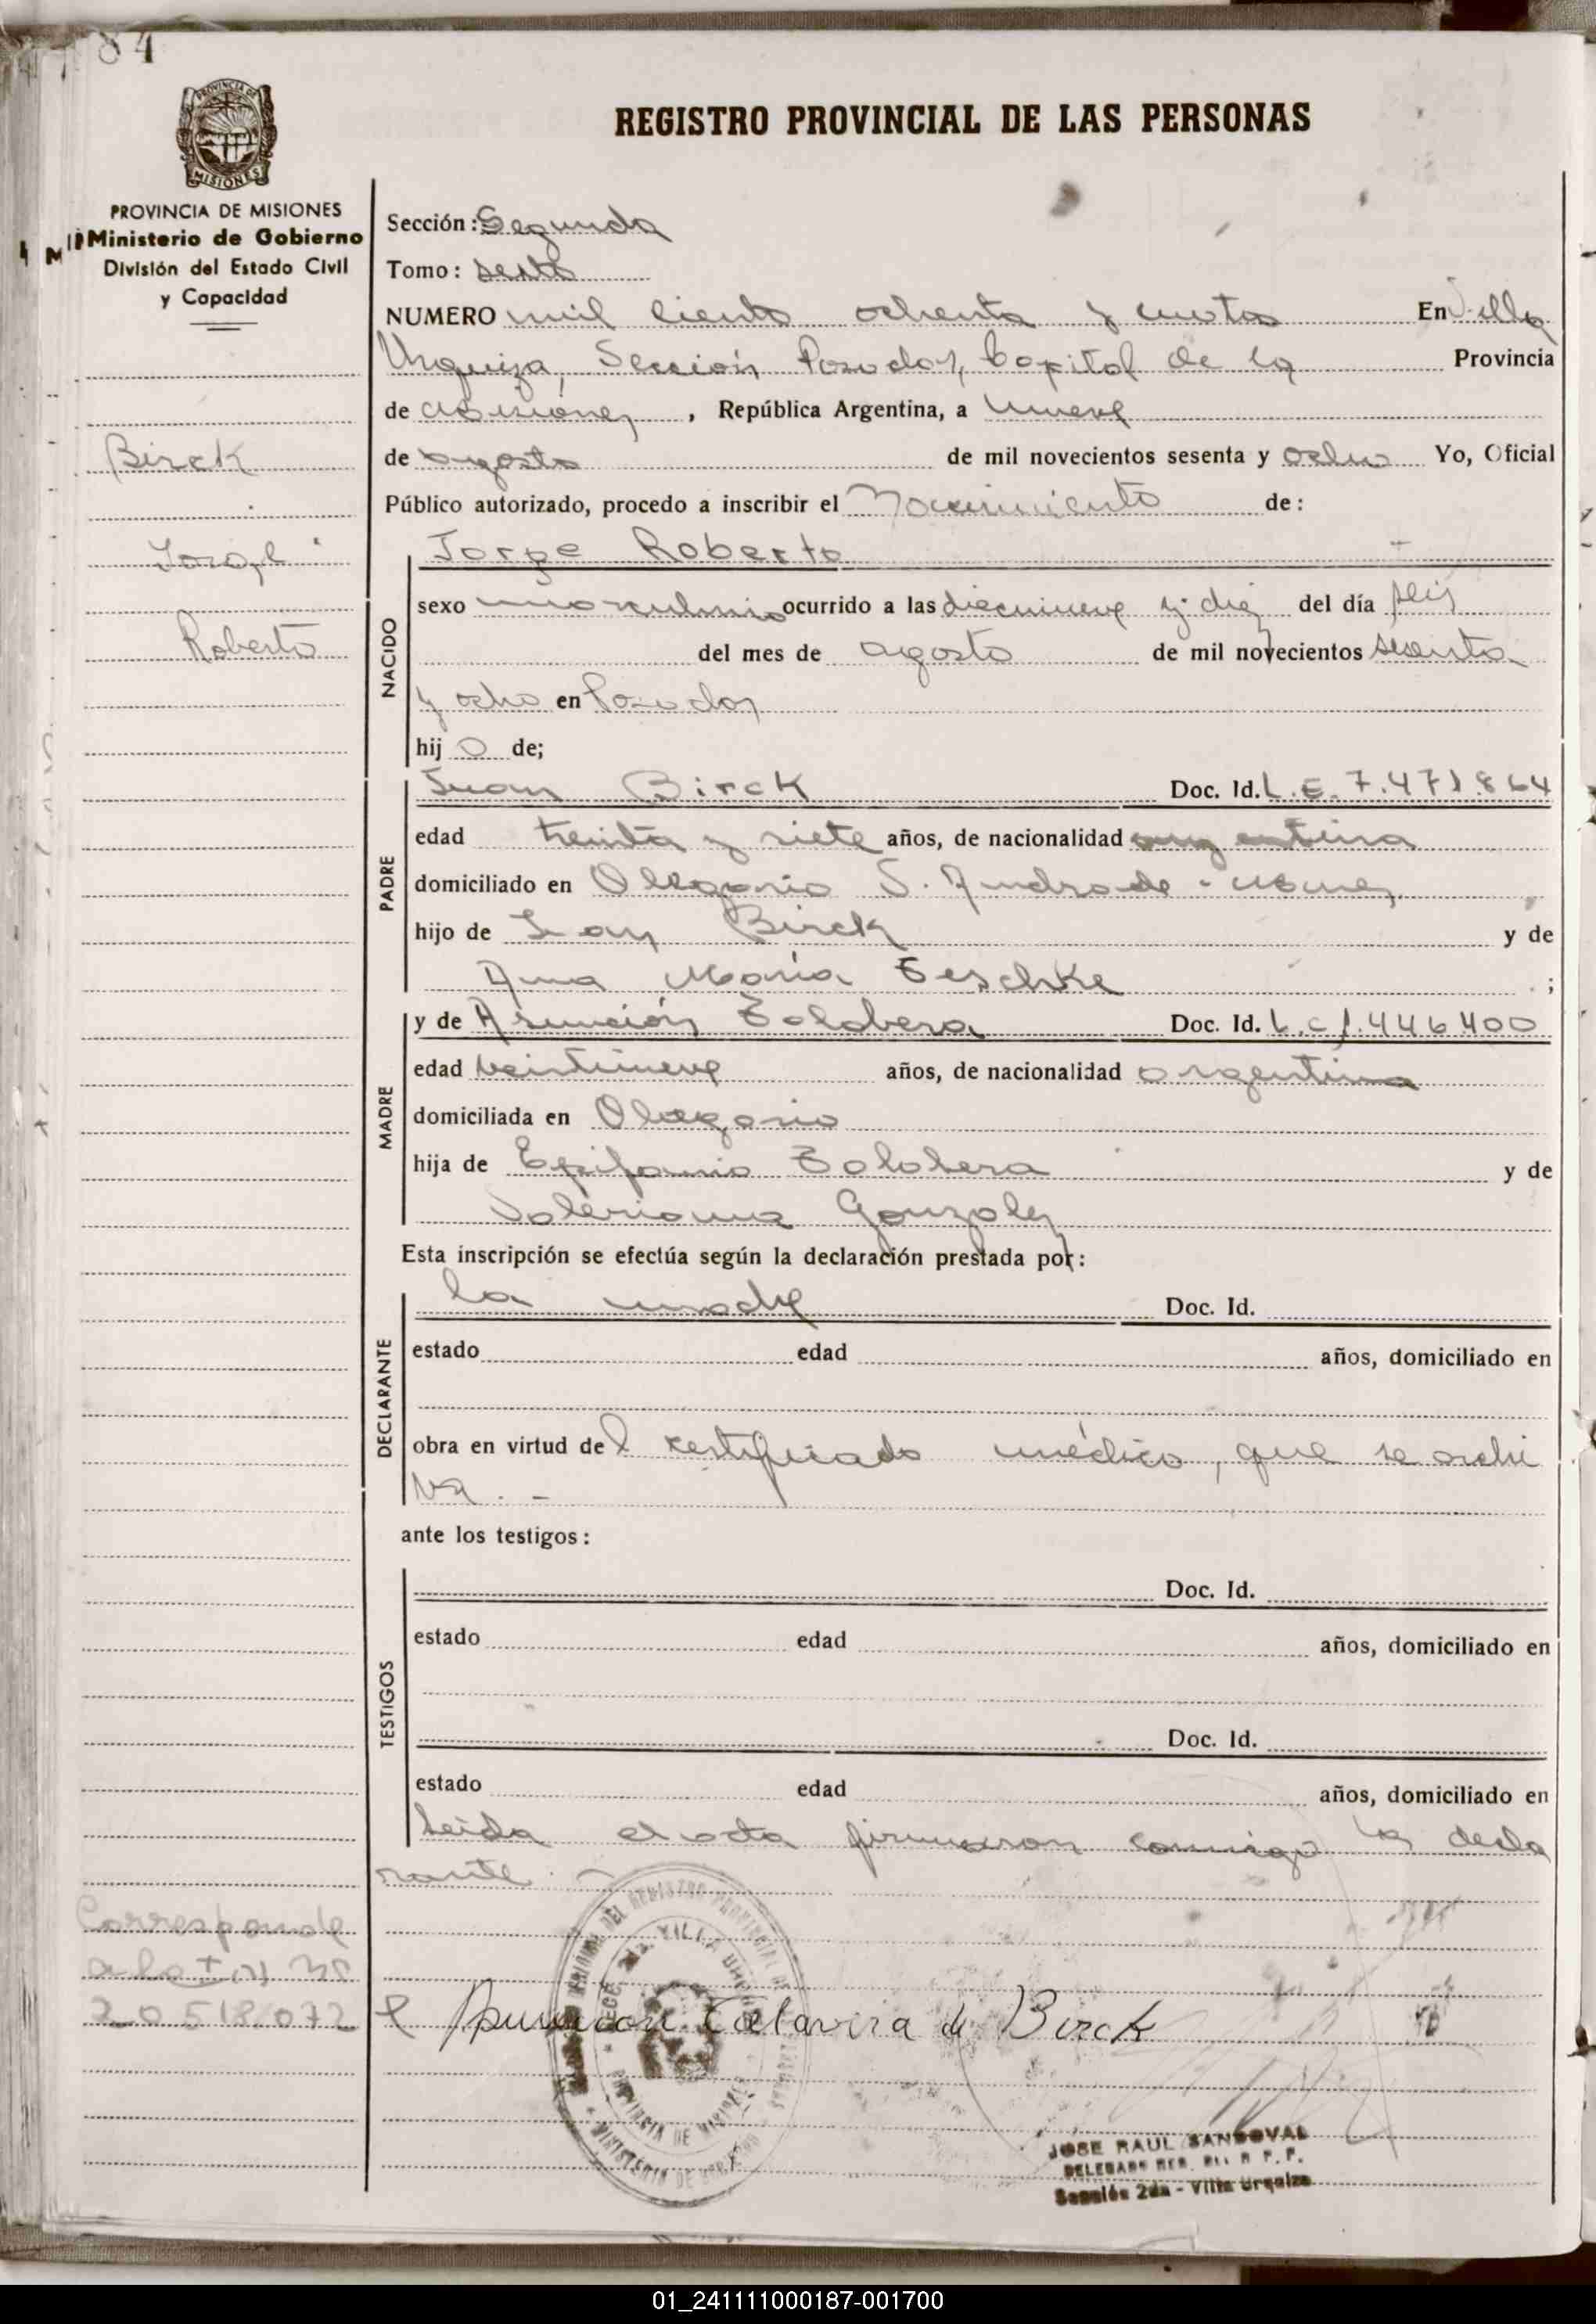 84
PROVINCIA DE MISIONES
REGISTRO PROVINCIAL DE LAS PERSONAS
PROVINCIA DE MISIONES
Ministerio de Gobierno
División del Estado Civil
y Capacidad
Birck
Jorge
Roberto
Sección: Segunda
Tomo: sexto
NUMERO mil ciento ochenta y cuatro En Villa
Urquiza, Sección Posadas, Capital de la Provincia
de Misiones, República Argentina, a nueve
de agosto de mil novecientos sesenta y ocho Yo, Oficial
Público autorizado, procedo a inscribir el Nacimiento de:
NACIDO
Jorge Roberto
sexo masculino ocurrido a las diecinueve y diez del día seis
del mes de agosto de mil novecientos sesenta
y ocho en Posadas
hijo de;
PADRE
Juan Birck Doc. Id. L.E. 7.471.864
edad treinta y siete años, de nacionalidad argentina
domiciliado en Olegario V. Andrade - Mnes
hijo de Juan Birck y de
Ana María Zeschke ;
MADRE
y de Asunción Talabera Doc. Id. L.C 1.446400
edad veintinueve años, de nacionalidad argentina
domiciliada en Olegario
hija de Epifanio Talabera y de
Valeriana Gonzalez
Esta inscripción se efectúa según la declaración prestada por:
DECLARANTE
la madre Doc. Id.
estado edad años, domiciliado en
obra en virtud del certificado médico, que se archi
va. -
ante los testigos:
TESTIGOS
Doc. Id.
estado edad años, domiciliado en
Doc. Id.
estado edad años, domiciliado en
Leida el acta firmaron conmigo la decla
rante.
Corresponde
a la
20.518.072
Asuncion Talavera de Birck
PROVINCIA DE MISIONES
JOSE RAUL SANDOVAL
Sección 2da - Villa Urquiza
01_241111000187-001700